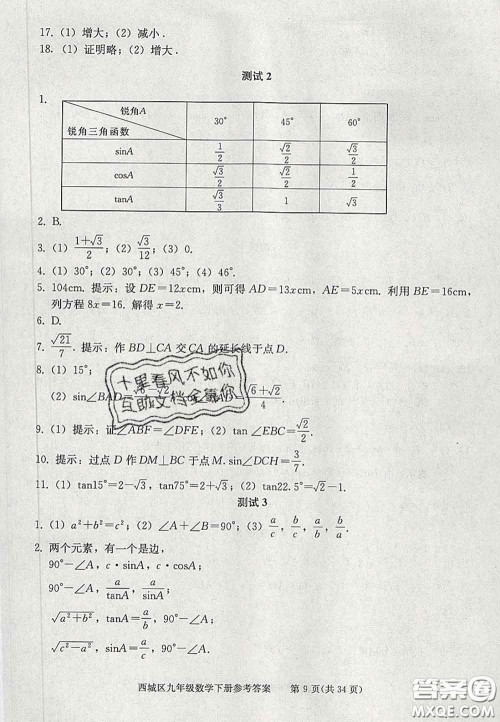 17.(1)增大;(2)减小.
18.(1)证明略;(2)增大.
测试2
1.
锐角A 30° 45° 60°
锐角三角函数
sinA 1/2 √2/2 √3/2
cosA √3/2 √2/2 1/2
tanA √3/3 1 √3
2. B.
3.(1)(1+√3)/2;(2)√3/12;(3)0.
4.(1)30°;(2)30°;(3)45°;(4)46°.
5. 104cm. 提示:设DE=12xcm,则可得AD=13xcm,AE=5xcm. 利用BE=16cm,
列方程8x=16. 解得x=2.
6. D.
7. √21/7. 提示:作BD⊥CA交CA的延长线于点D.
8.(1)15°;
(2)sin∠BAD (√6+√2)/4.
9.(1)提示:证∠ABF=∠DFE;(2)tan∠EBC=√2/2.
10. 提示:过点D作DM⊥BC于点M. sin∠DCH=3/7.
11.(1)tan15°=2-√3;(2)tan22.5°=√2-1.
测试3
1.(1)a²+b²=c²;(2)∠A+∠B=90°;(3)a/c,b/c,a/b.
2. 两个元素,有一个是边,
90°-∠A,c·sinA,c·cosA;
90°-∠A,a/tanA,a/sinA;
√(a²+b²),a/b,90°-∠A;
√(c²-a²),sinA=a/c,90°-∠A.
十里春风不如你
互助文档全靠你
西城区九年级数学下册参考答案 第9页(共34页)
答案圈
MXQE.COM